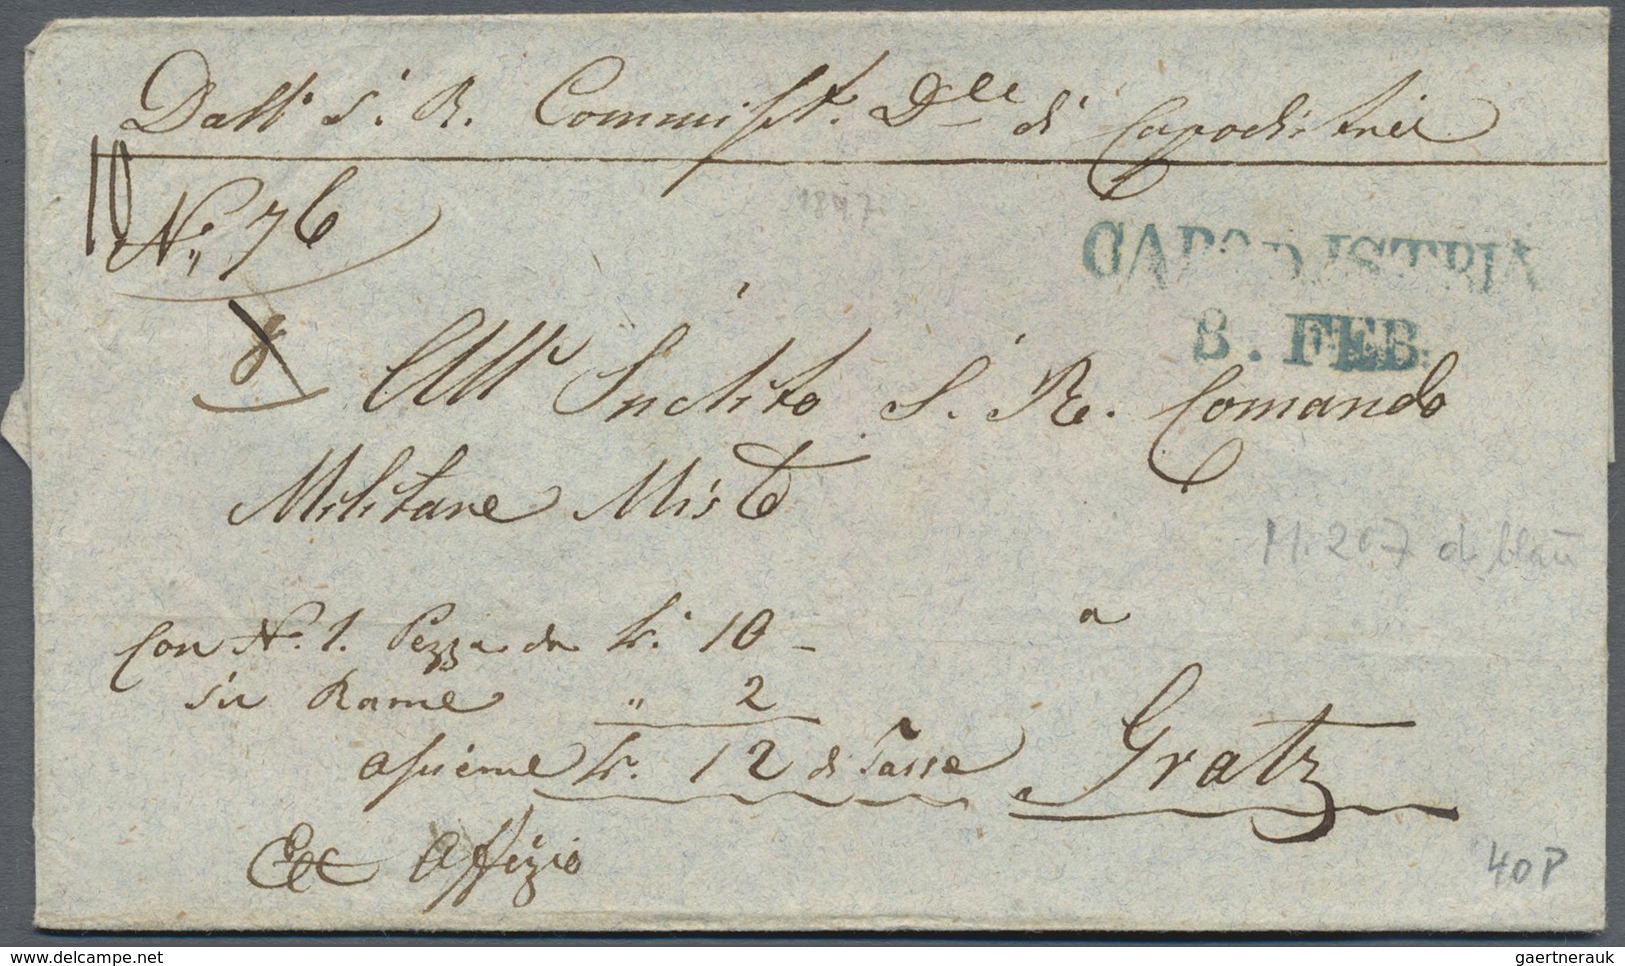 Dall' I. R. Commiss.t D.le di Capodistria
10
N. 76
1847
CAPODISTRIA
8. FEB.
All' Inclito I. R. Comando
Militare Misto
M. 207 d blau
a
Con N. 1. Pezza da k. 10 –
in Rame " 2
assieme k. 12 di Tasse
Gratz
Ex Offizio
40P
delcampe.net
gaertnerauk